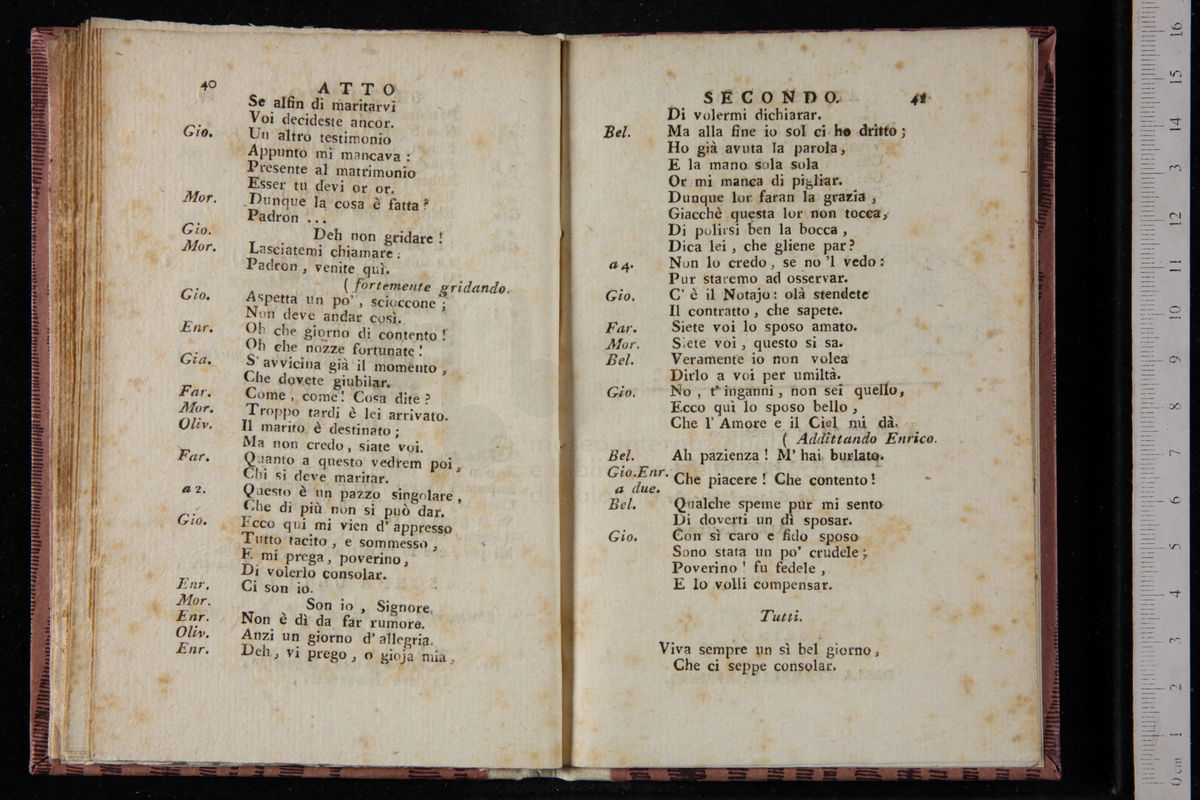 40 ATTO
Se alfin di maritarvi
Voi decideste ancor.
Gio. Un altro testimonio
Appunto mi mancava :
Presente al matrimonio
Esser tu devi or or.
Mor. Dunque la cosa è fatta ?
Padron ...
Gio. Deh non gridare !
Mor. Lasciatemi chiamare :
Padron , venite quì.
( fortemente gridando.
Gio. Aspetta un po' , scioccone ;
Non deve andar così.
Enr. Oh che giorno di contento !
Oh che nozze fortunate !
Gia. S' avvicina già il momento ,
Che dovete giubilar.
Far. Come , come ! Cosa dite ?
Mor. Troppo tardi è lei arrivato.
Oliv. Il marito è destinato ;
Ma non credo , siate voi.
Far. Quanto a questo vedrem poi ,
Chi si deve maritar.
a 2. Questo è un pazzo singolare ,
Che di più non si può dar.
Gio. Ecco qui mi vien d' appresso
Tutto tacito , e sommesso ,
E mi prega , poverino ,
Di volerlo consolar.
Enr. Ci son io.
Mor. Son io , Signore.
Enr. Non è dì da far rumore.
Oliv. Anzi un giorno d' allegria.
Enr. Deh , vi prego , o gioja mia ,
SECONDO. 41
Di volermi dichiarar.
Bel. Ma alla fine io sol ci ho dritto ;
Ho già avuta la parola ,
E la mano sola sola
Or mi manca di pigliar.
Dunque lor faran la grazia ,
Giacchè questa lor non tocca ,
Di polirsi ben la bocca ,
Dica lei , che gliene par ?
a 4. Non lo credo , se no 'l vedo :
Pur staremo ad osservar.
Gio. C' è il Notajo : olà stendete
Il contratto , che sapete.
Far. Siete voi lo sposo amato.
Mor. Siete voi , questo si sa.
Bel. Veramente io non volea
Dirlo a voi per umiltà.
Gio. No , t' inganni , non sei quello ,
Ecco quì lo sposo bello ,
Che l' Amore e il Ciel mi dà.
( Addittando Enrico.
Bel. Ah pazienza ! M' hai burlato.
Gio.Enr. a due. Che piacere ! Che contento !
Bel. Qualche speme pur mi sento
Di doverti un dì sposar.
Gio. Con sì caro e fido sposo
Sono stata un po' crudele ;
Poverino ! fu fedele ,
E lo volli compensar.
Tutti.
Viva sempre un sì bel giorno ,
Che ci seppe consolar.
0 cm 1 2 3 4 5 6 7 8 9 10 11 12 13 14 15 16